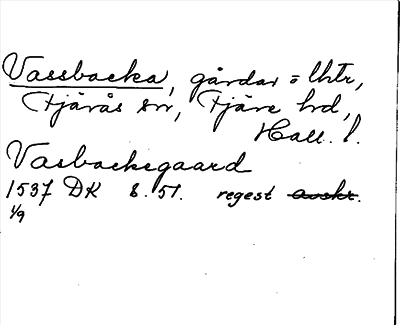 Vassbacka, gårdar o lhtr,
Fjärås sn, Fjäre hd,
Hall. l.
Vasbackegaard
1537 DK 8.51. regest avskr.
1/9